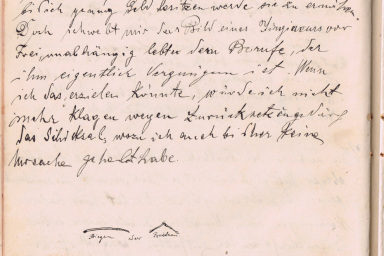 bis ich genug Geld besitzen werde sie zu
Doch schwebt mir das Bild eines Ingieurs vor
Frei, unabhängig lebt er dem Berufe, der
ihm eigentlich Vergnügen ist. Wenn
ich das erzielen könnte, würde ich nicht
mehr klagen wegen Zurücksetzung durch
das Schicksal, wozu ich auch bisher keine
Ursache gehabt habe
Biegen oder Brechen